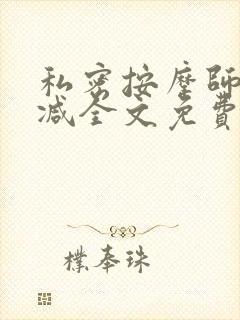 私密按摩師
减全文免費
樸奉珠